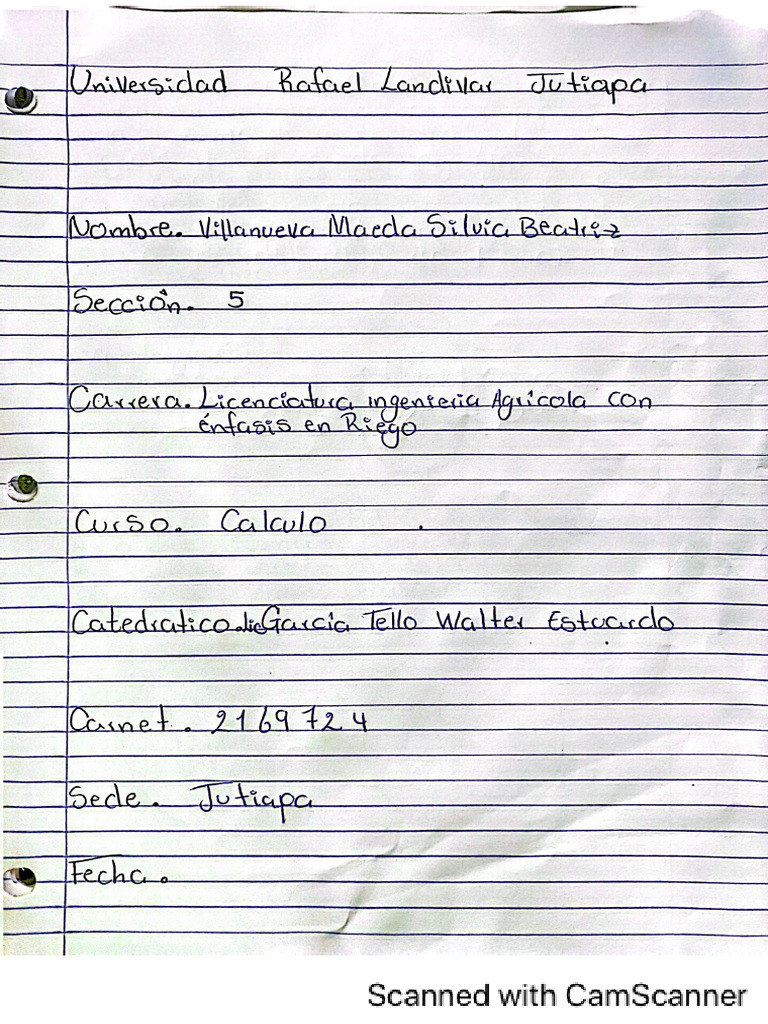 Universidad Rafael Landivar Jutiapa
Nombre. Villanueva Maeda Silvia Beatriz
Sección. 5
Carrera. Licenciatura ingenieria Agricola con
énfasis en Riego
Curso. Calculo
Catedratico. lic Garcia Tello Walter Estuardo
Carnet. 2169724
Sede. Jutiapa
Fecha.
Scanned with CamScanner